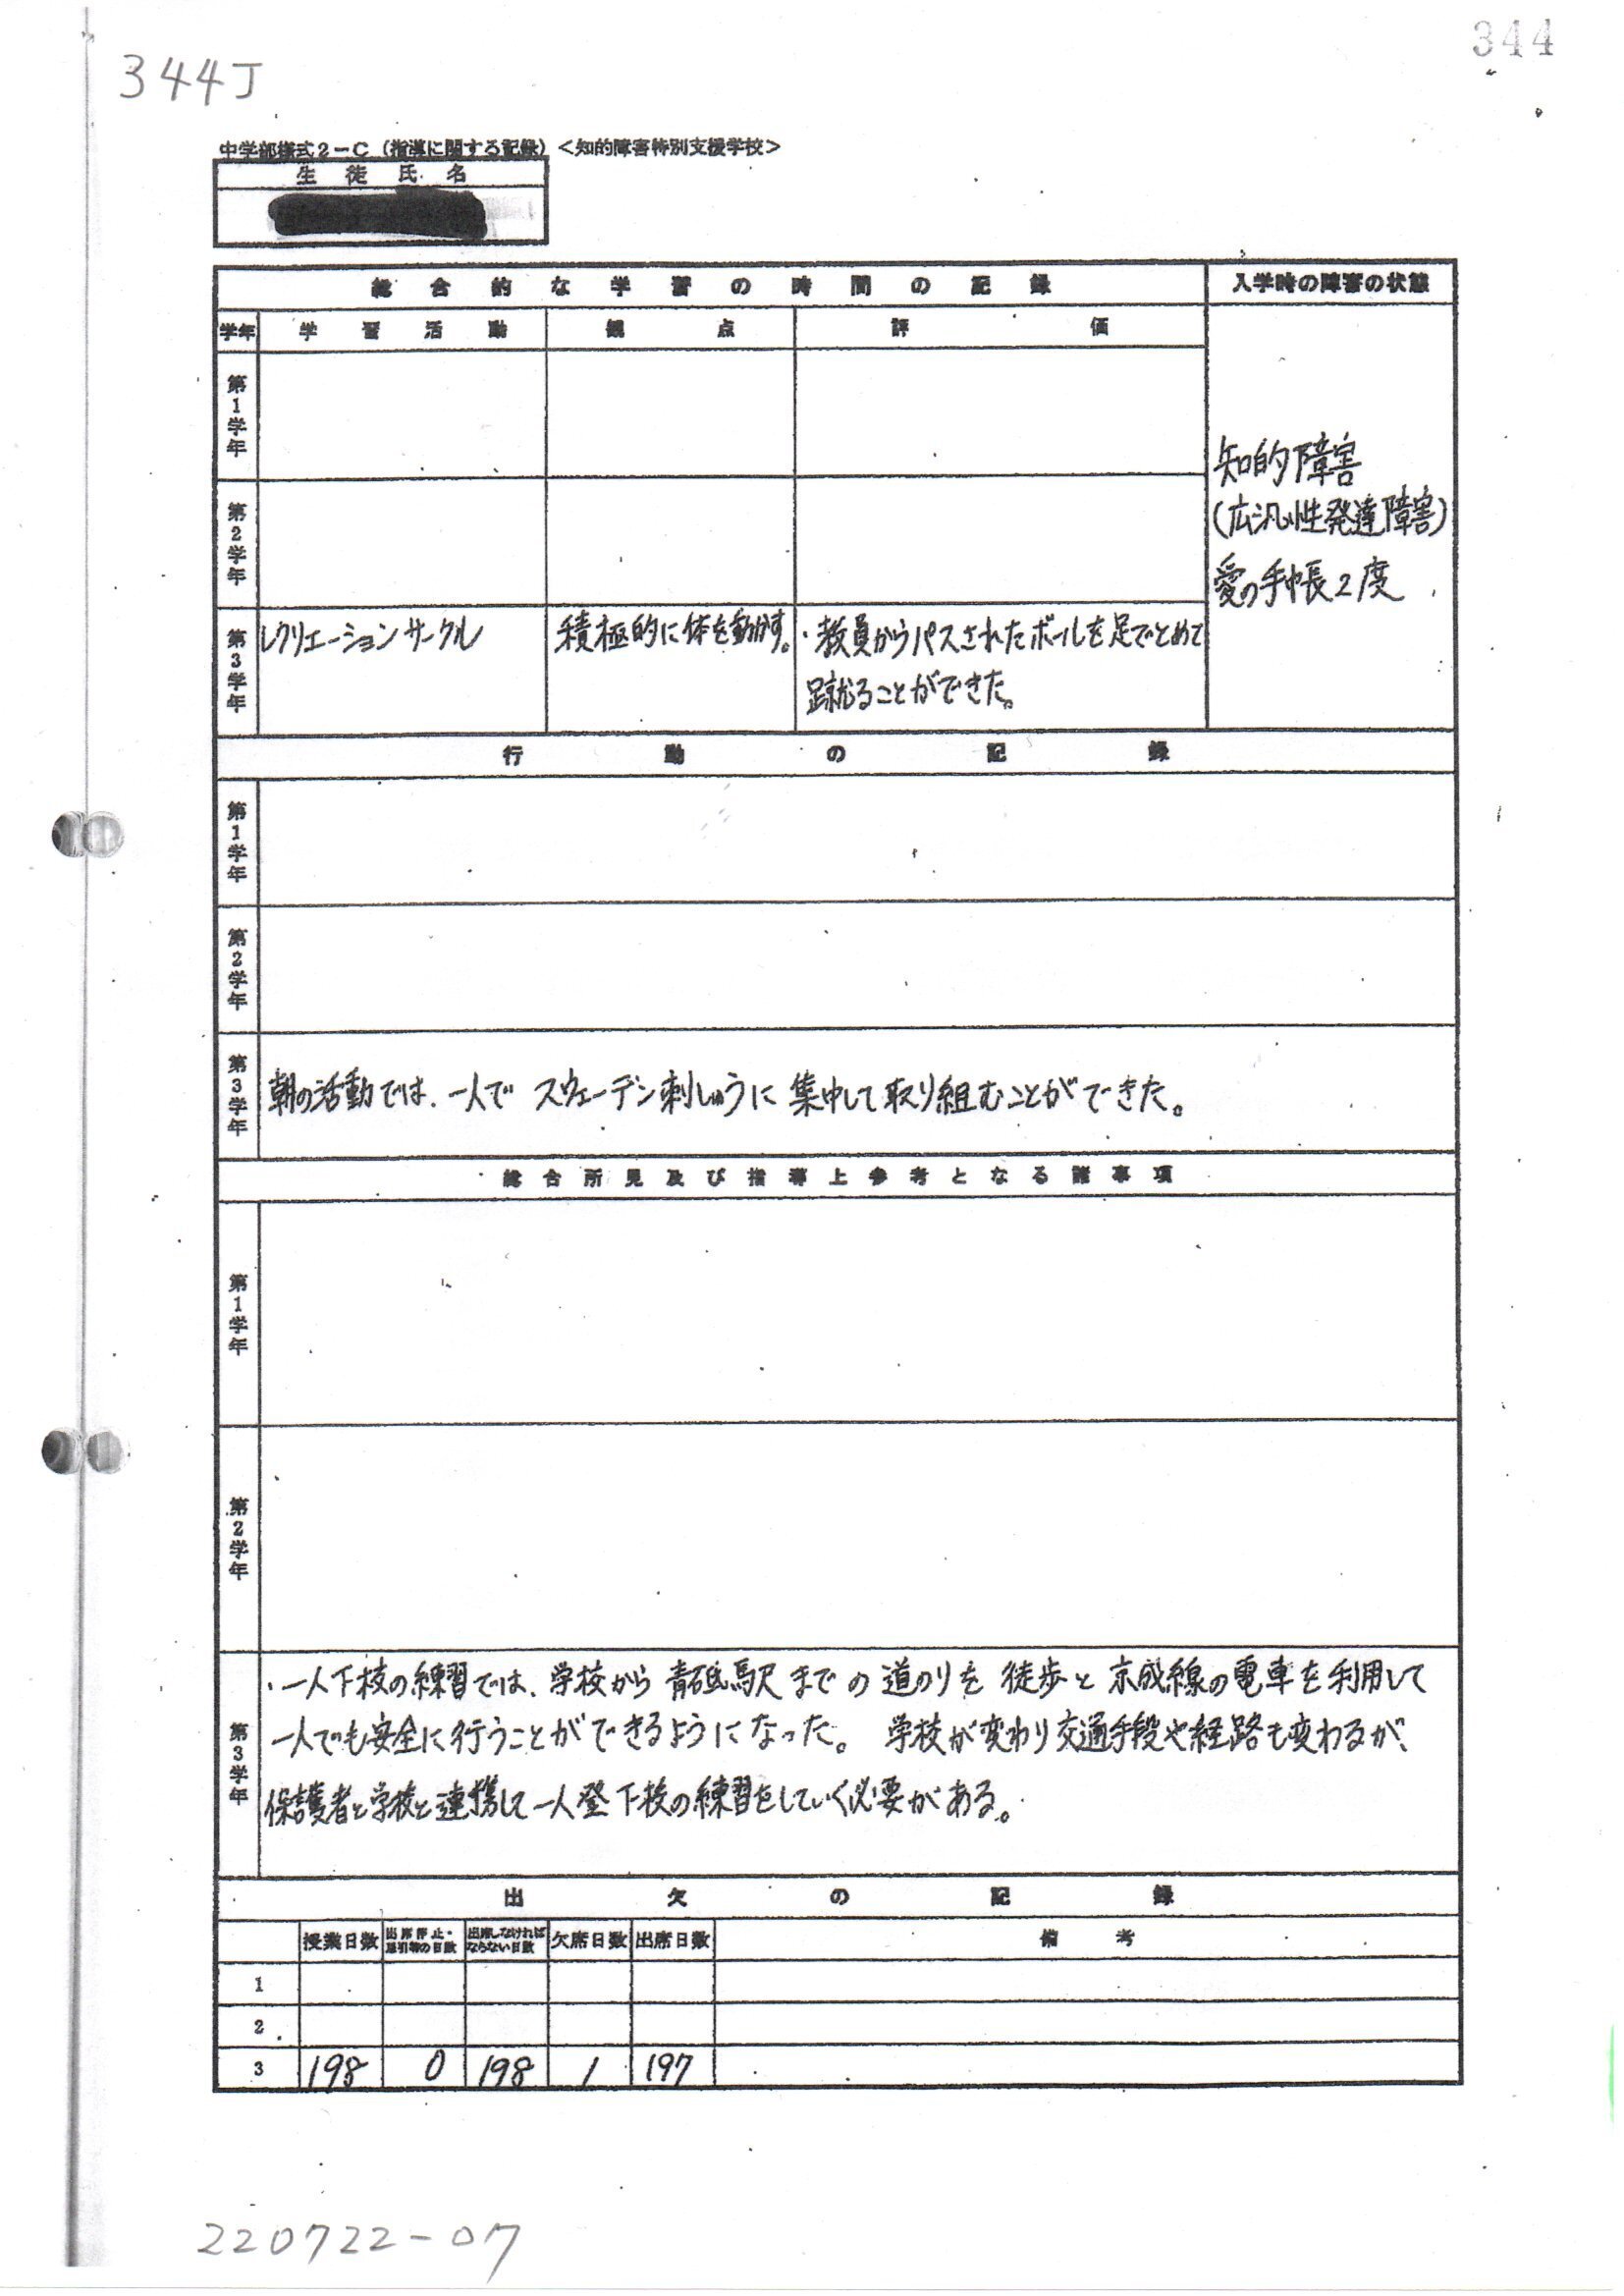 344
344J
中学部様式2-C（指導に関する記録）＜知的障害特別支援学校＞
生徒氏名
総合的な学習の時間の記録
入学時の障害の状態
学年 学習活動 観点 評価
第1学年
第2学年
知的障害
（広汎性発達障害）
愛の手帳2度
第3学年
レクリエーションサークル
積極的に体を動かす。
・教員からパスされたボールを足でとめて
蹴ることができた。
行動の記録
第1学年
第2学年
第3学年
朝の活動では、一人で スウェーデン刺しゅうに 集中して取り組むことができた。
総合所見及び指導上参考となる諸事項
第1学年
第2学年
第3学年
・一人下校の練習では、学校から 青砥駅までの 道のりを 徒歩と 京成線の電車を利用して
一人でも安全に行うことができるようになった。 学校が変わり交通手段や経路も変わるが、
保護者と学校と連携して一人登下校の練習をしていく必要がある。
出欠の記録
授業日数 出席停止・忌引等の日数 出席しなければならない日数 欠席日数 出席日数 備考
1
2
3 198 0 198 1 197
220722-07